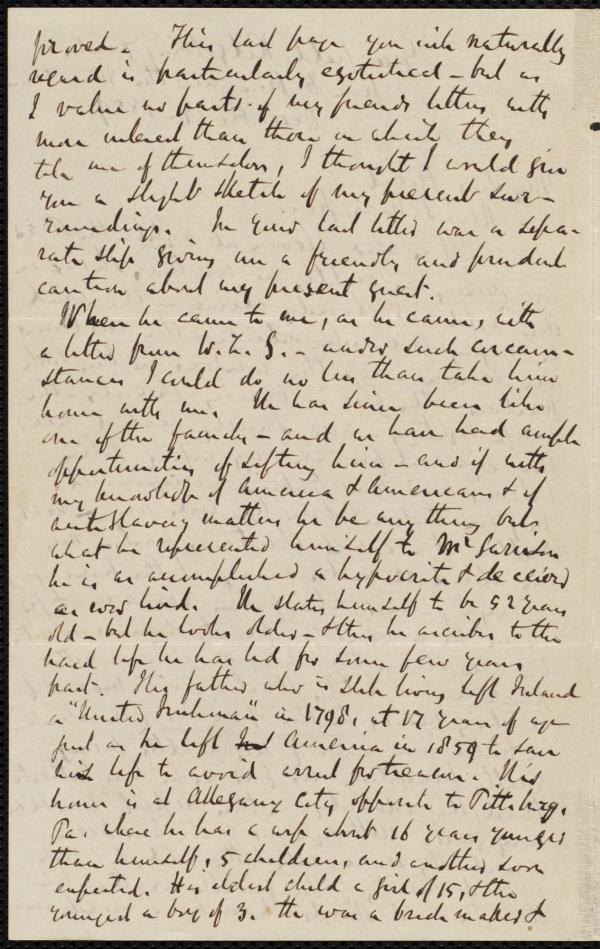 proved. This last page you will naturally
regard is particularly egotistical - but as
I value no parts of my friends letters with
more interest than those in which they
tell me of themselves, I thought I would give
you a slight sketch of my present sur-
roundings. In your last letter was a sepa-
rate slip giving me a friendly and prudent
caution about my present guest.
When he came to me, as he came, with
a letter from W. L. G. - under such circum-
stances I could do no less than take him
home with me. He has since been like
one of the family - and we have had ample
opportunities of sifting him - and if with
my knowledge of America & Americans & of
antislavery matters he be any thing but
what he represented himself to Mr Garrison
he is as accomplished a hypocrite & deceiver
as ever lived. He states himself to be 52 years
old - but he looks older - & this he ascribes to the
hard life he has led for some few years
past. His father who is still living left Ireland
a "United Irishman" in 1798, at 17 years of age
just as he left America in 1859 to save
his life to avoid arrest for treason. His
home is at Allegany City opposite to Pittsburg,
Pa. where he has a wife about 16 years younger
than himself, 5 children, and another soon
expected. His eldest child a girl of 15, & the
youngest a boy of 3. He was a brick maker &